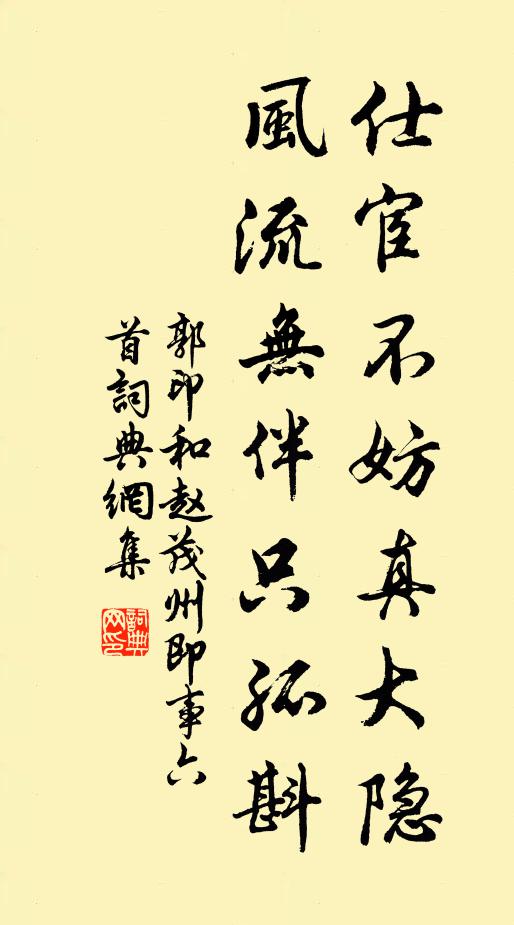 仕宦不妨真大隐
風流無伴只孤斟
郭印和赵茂州即事六
首詞典網集
詞典
网印